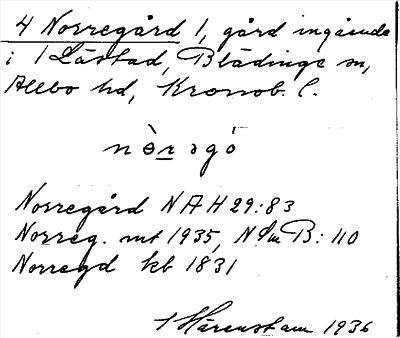 4 Norregård 1, gård ingående
i 1 Låstad, Blädinge sn,
Allbo hd, Kronob. l.
Norregård NAH 29:83
Norreg. mt 1935, N Sm B: 110
Norregd kb 1831
Härenstam 1936